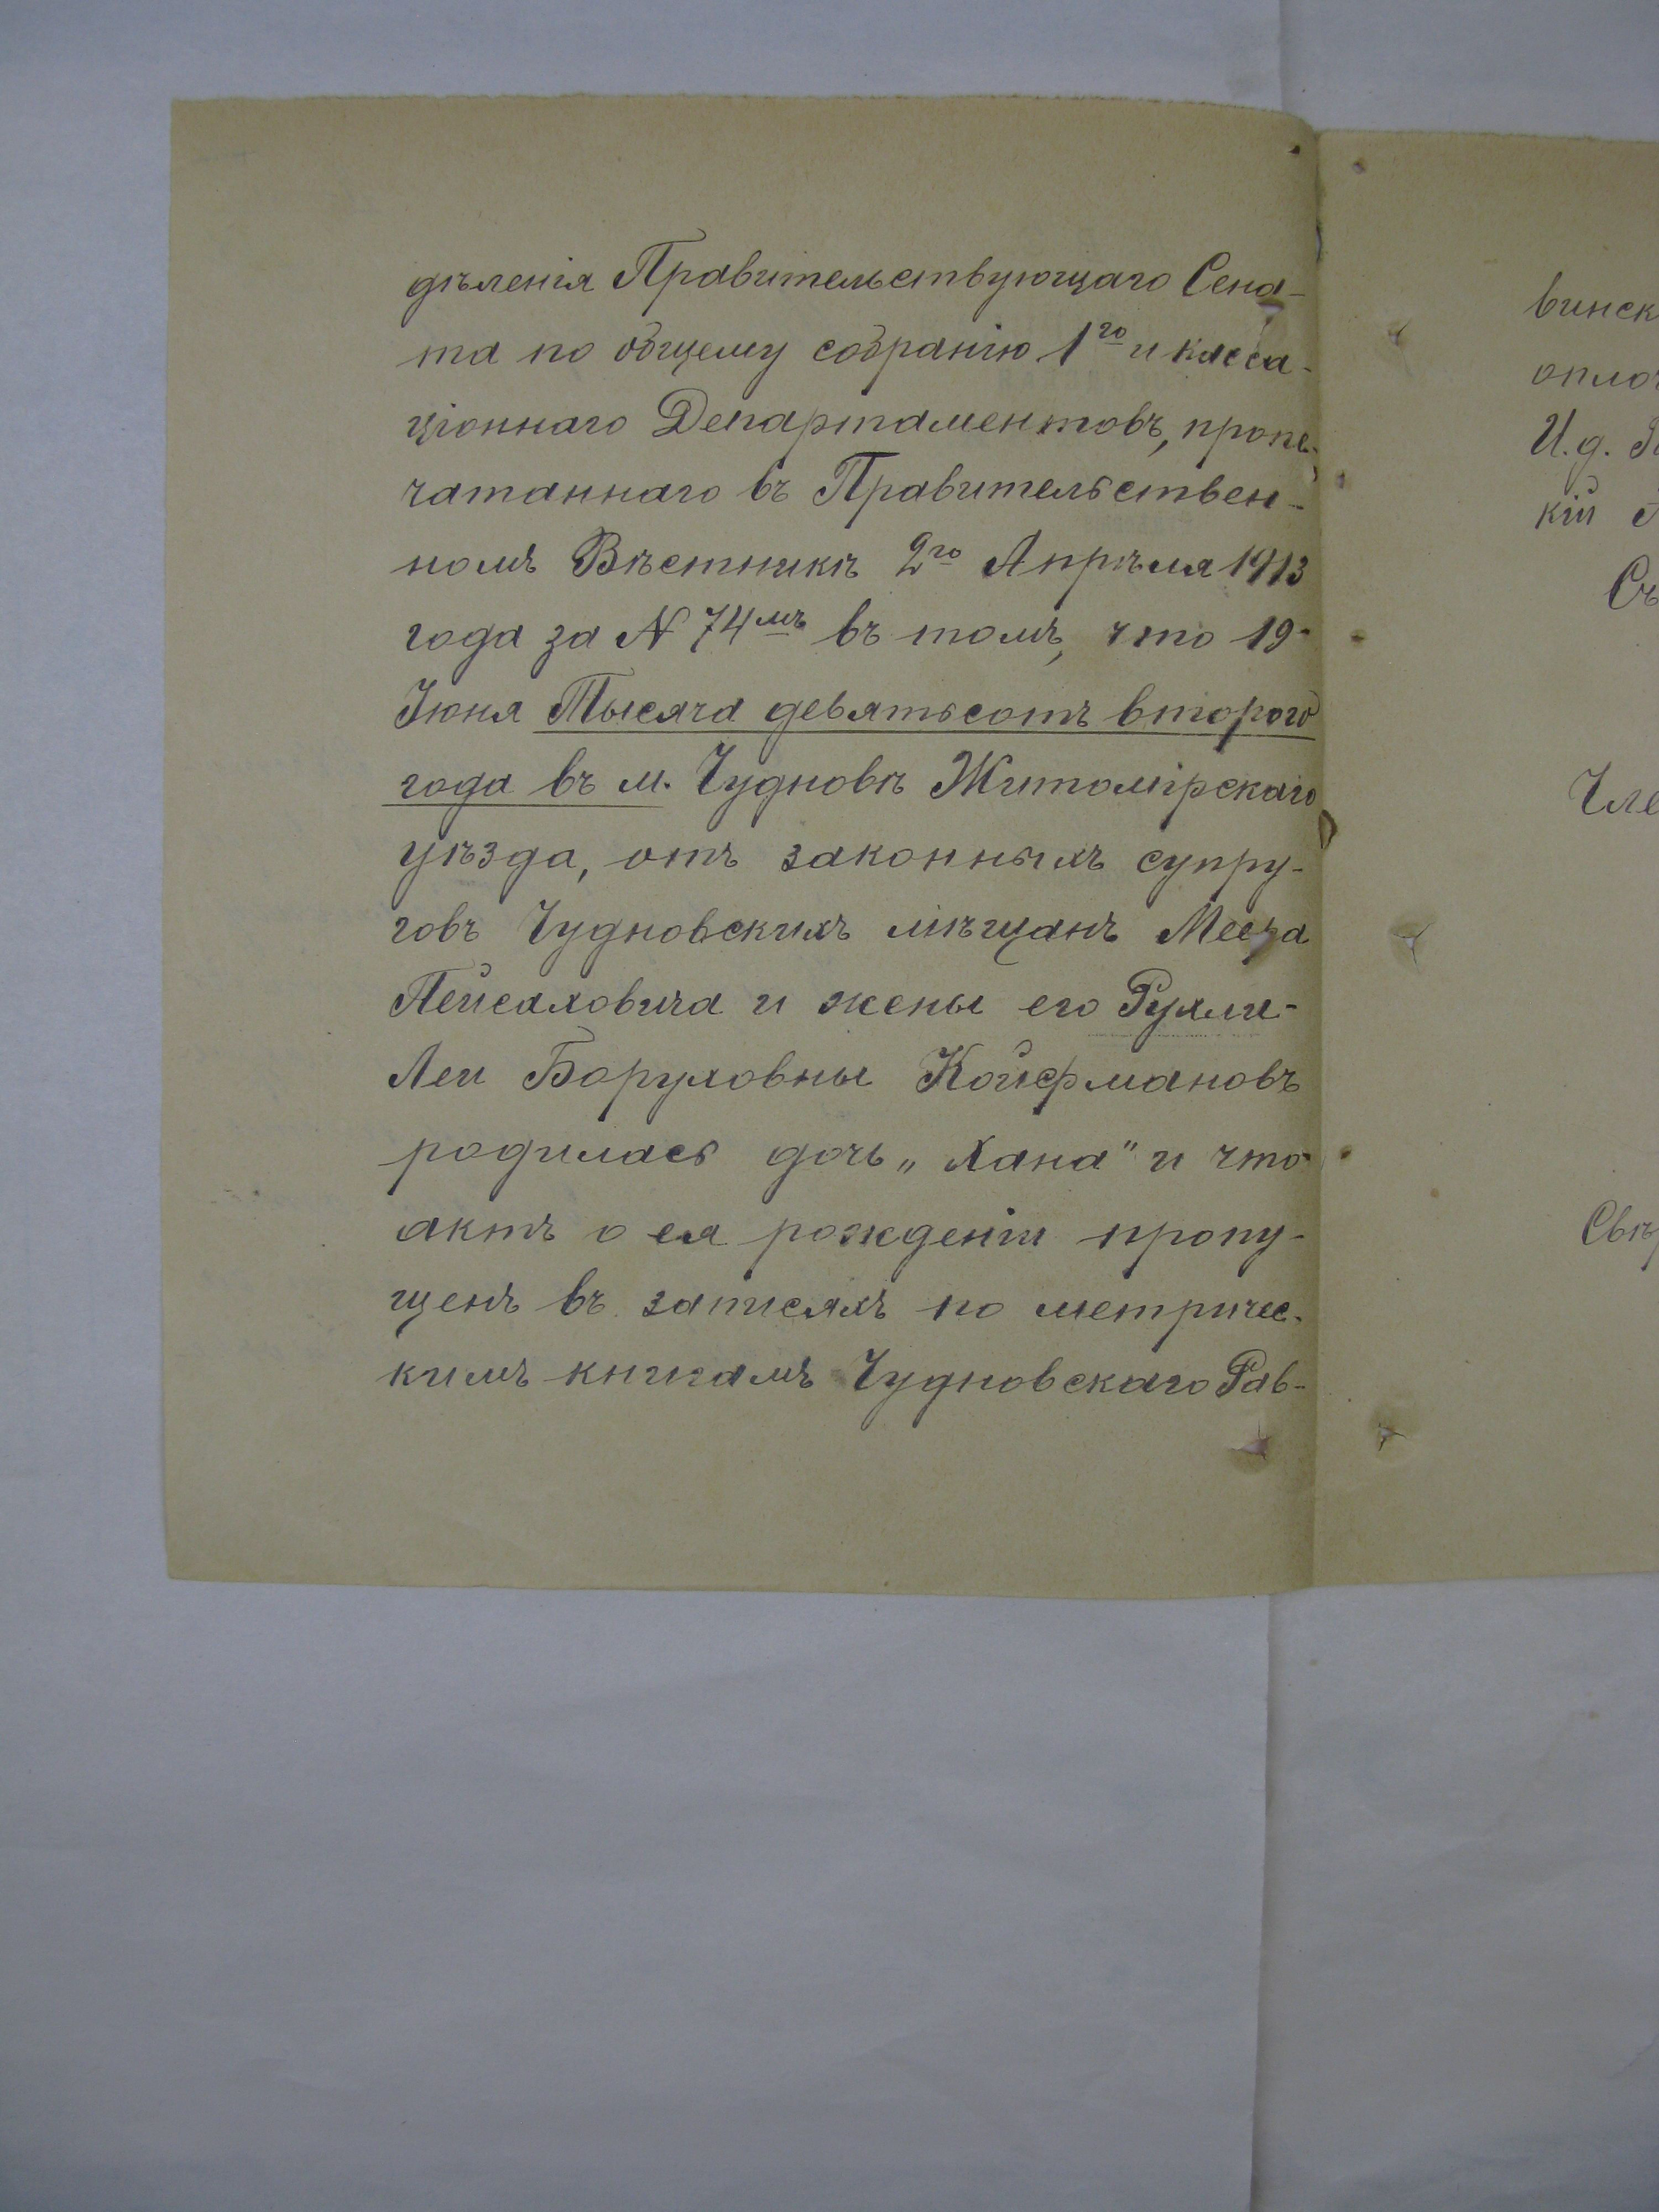 дѣленія Правительствующаго Сена-
та по общему собранію 1го и касса-
ціоннаго Департаментовъ, пропе-
чатаннаго въ Правительствен-
номъ Вѣстникѣ 2го Апрѣля 1913
года за N 74мъ въ томъ, что 19-
Іюня Тысяча девятьсотъ второго
года въ м. Чудновѣ Житомірскаго
уѣзда, отъ законныхъ супру-
говъ Чудновскихъ мѣщанъ
Пейсаховича и жены его Рухли-
Леи Боруховны Койфмановъ
родилась дочь „Хана" и что
актъ о ея рожденіи пропу-
щенъ въ записяхъ по метричес-
кимъ книгамъ Чудновскаго Рав-
винск
опло
И.д.
кій
Съ
Чле
Свѣр